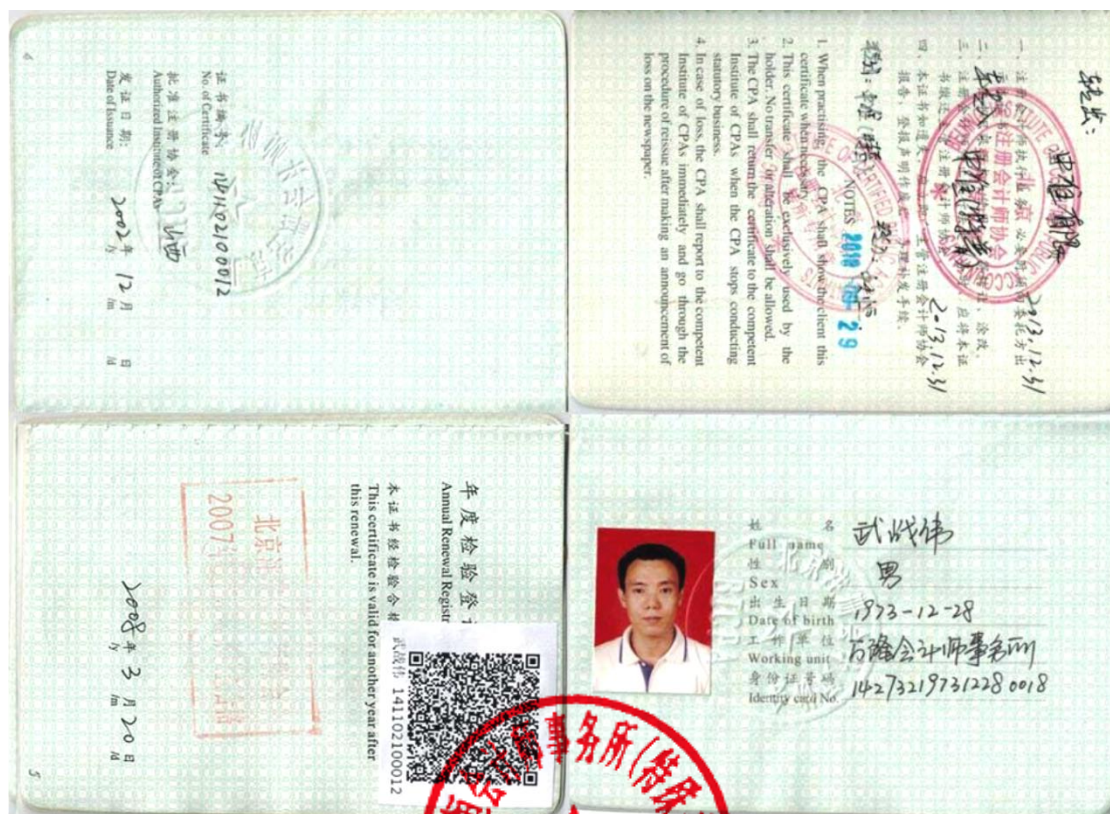 4
证书编号:
No. of Certificate
141102100012
批准注册协会:
Authorized Institute of CPAs
山西
发证日期:
Date of Issuance
2002 年 12 月 日
/y /m /d
转出:
中准有限
2013.12.31
转入 中准(特普)
2013.12.31
NOTES
2018
29
1. When practising, the CPA shall show the client this
certificate when necessary.
2. This certificate shall be exclusively used by the
holder. No transfer or alteration shall be allowed.
3. The CPA shall return the certificate to the competent
Institute of CPAs when the CPA stops conducting
statutory business.
4. In case of loss, the CPA shall report to the competent
Institute of CPAs immediately and go through the
procedure of reissue after making an announcement of
loss on the newspaper.
年度检验登
Annual Renewal Regist
本证书经检验合格
This certificate is valid for another year after
this renewal.
武战伟 141102100012
北京
2007
2008 年 3 月 20 日
/y /m /d
5
姓 名 武战伟
Full name
性 别 男
Sex
出生日期 1973-12-28
Date of birth
工作单位 会计师事务所
Working unit
身份证号码 142732197312280018
Identity card No.
师事务所(特殊